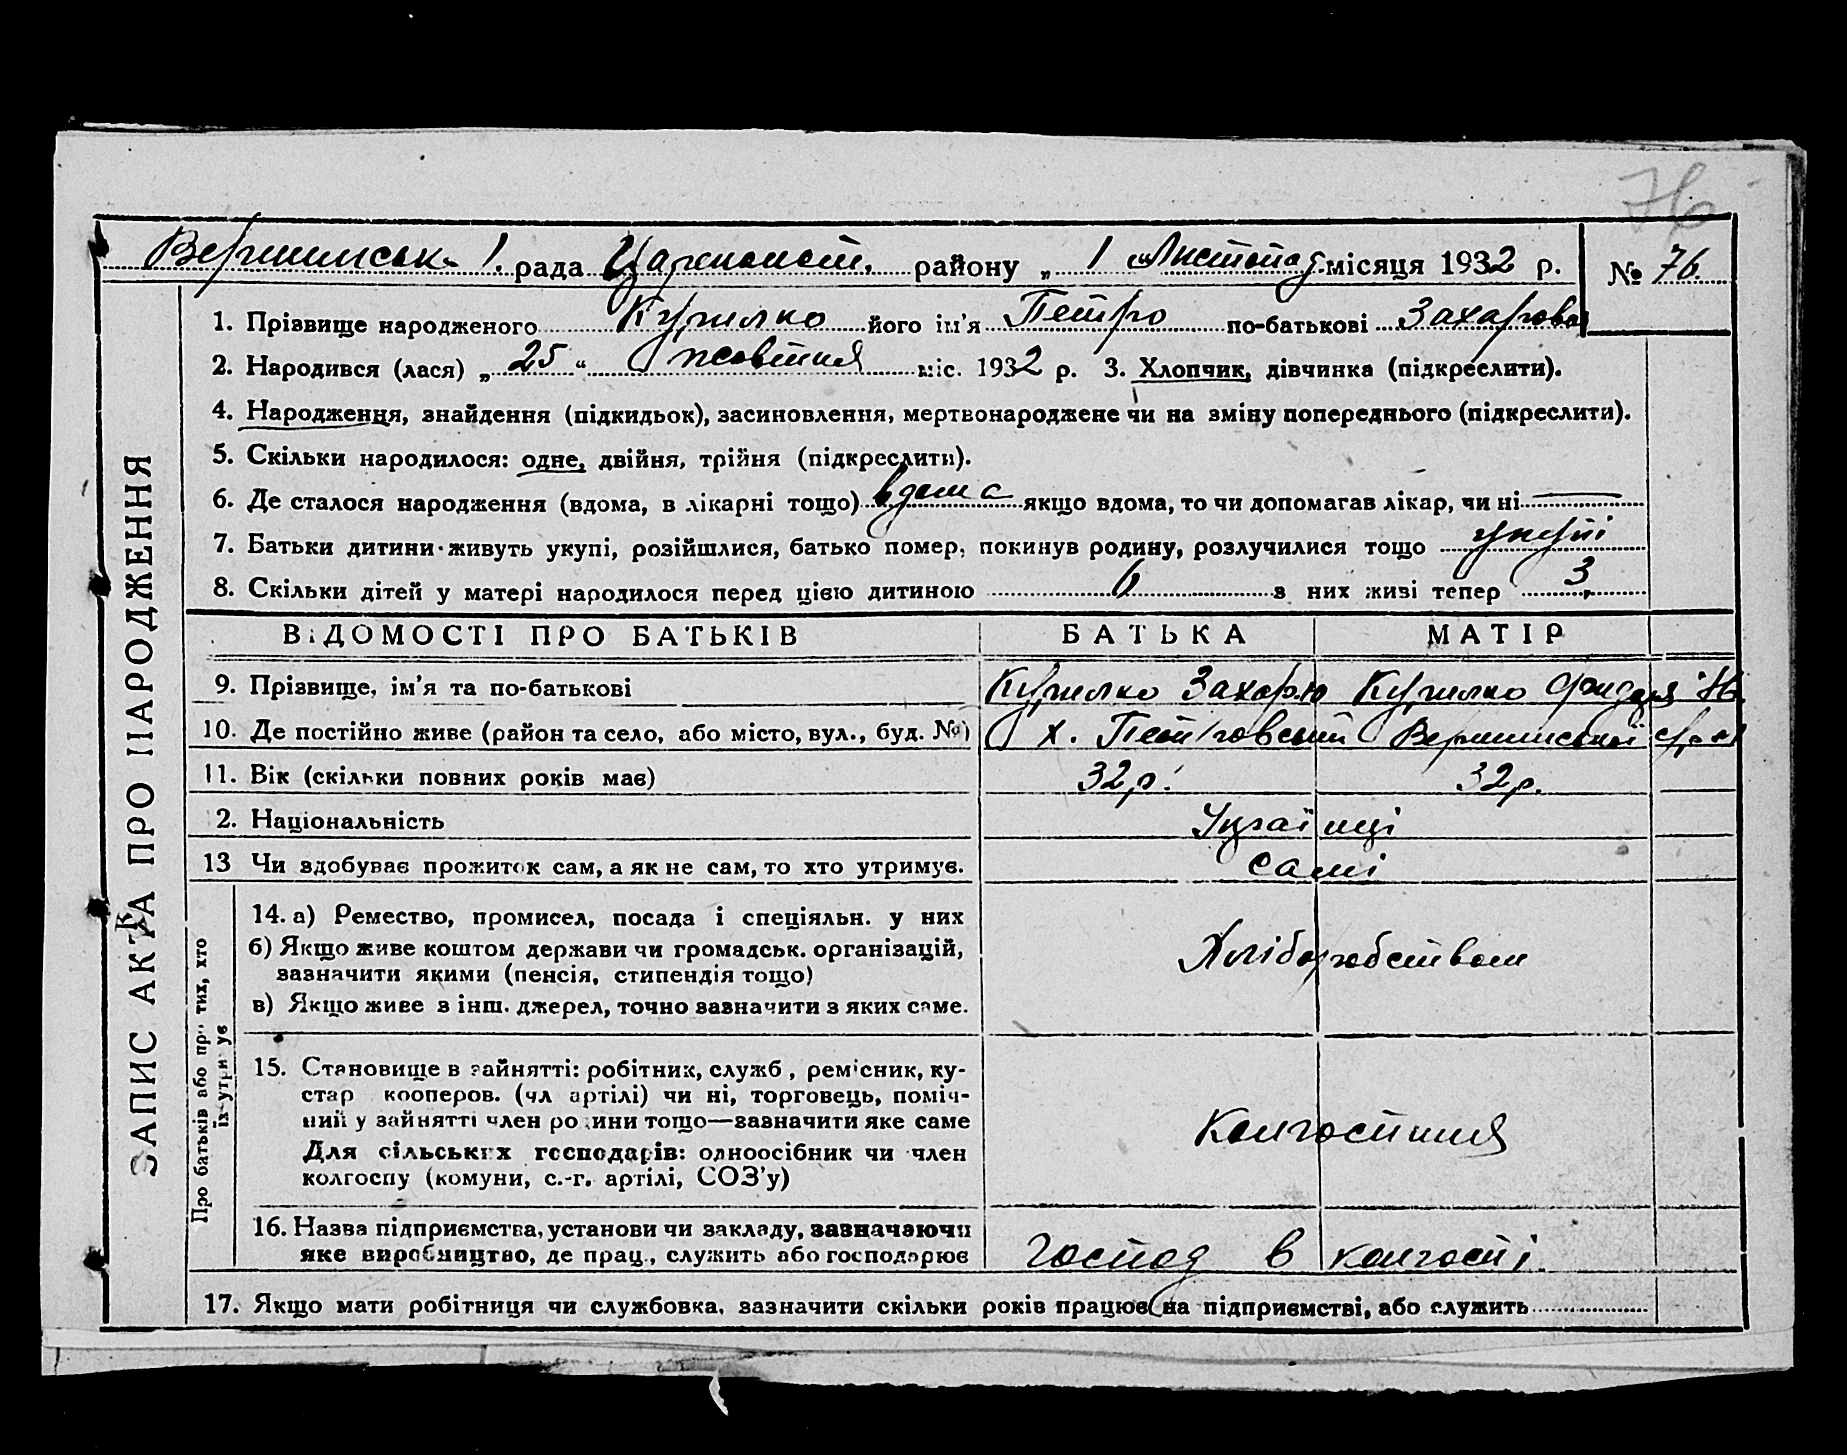 76
Вершинськ. І. рада Царичанськ. району „ 1 " Листопад місяця 1932 р. № 76.
1. Прізвище народженого Кужелко його ім'я Петро по-батькові Захаров
2. Народився (лася) „ 25 " жовтня міс. 1932 р. 3. Хлопчик, дівчинка (підкреслити).
4. Народження, знайдення (підкидьок), засиновлення, мертвонароджене чи на зміну попереднього (підкреслити).
5. Скільки народилося: одне, двійня, трійня (підкреслити).
6. Де сталося народження (вдома, в лікарні тощо) вдома якщо вдома, то чи допомагав лікар, чи ні —
7. Батьки дитини живуть укупі, розійшлися, батько помер, покинув родину, розлучилися тощо укупі
8. Скільки дітей у матері народилося перед цією дитиною 6 з них живі тепер 3
ВІДОМОСТІ ПРО БАТЬКІВ БАТЬКА МАТІР
9. Прізвище, ім'я та по-батькові Кужелко Кужелко
10. Де постійно живе (район та село, або місто, вул., буд. №) х. Петровський Вершинської с/рад
11. Вік (скільки повних років має) 32 р. 32 р.
2. Національність Українці
13 Чи здобуває прожиток сам, а як не сам, то хто утримує. самі
14. а) Ремество, промисел, посада і спеціяльн. у них
б) Якщо живе коштом держави чи громадськ. організацій,
зазначити якими (пенсія, стипендія тощо)
Хліборобством
в) Якщо живе з інш. джерел, точно зазначити з яких саме.
15. Становище в зайнятті: робітник, служб., ремісник, ку-
стар кооперов. (чл артілі) чи ні, торговець, поміч-
ний у зайнятті член родини тощо—зазначити яке саме
Колгоспник
Для сільських господарів: одноосібник чи член
колгоспу (комуни, с.-г. артілі, СОЗ'у)
16. Назва підприємства, установи чи закладу, зазначаючи
яке виробництво, де прац., служить або господарює Господ в колгоспі.
17. Якщо мати робітниця чи службовка, зазначити скільки років працює на підприємстві, або служить
ЗАПИС АКТА ПРО НАРОДЖЕННЯ
Про батьків або про тих, хто
їх утримує